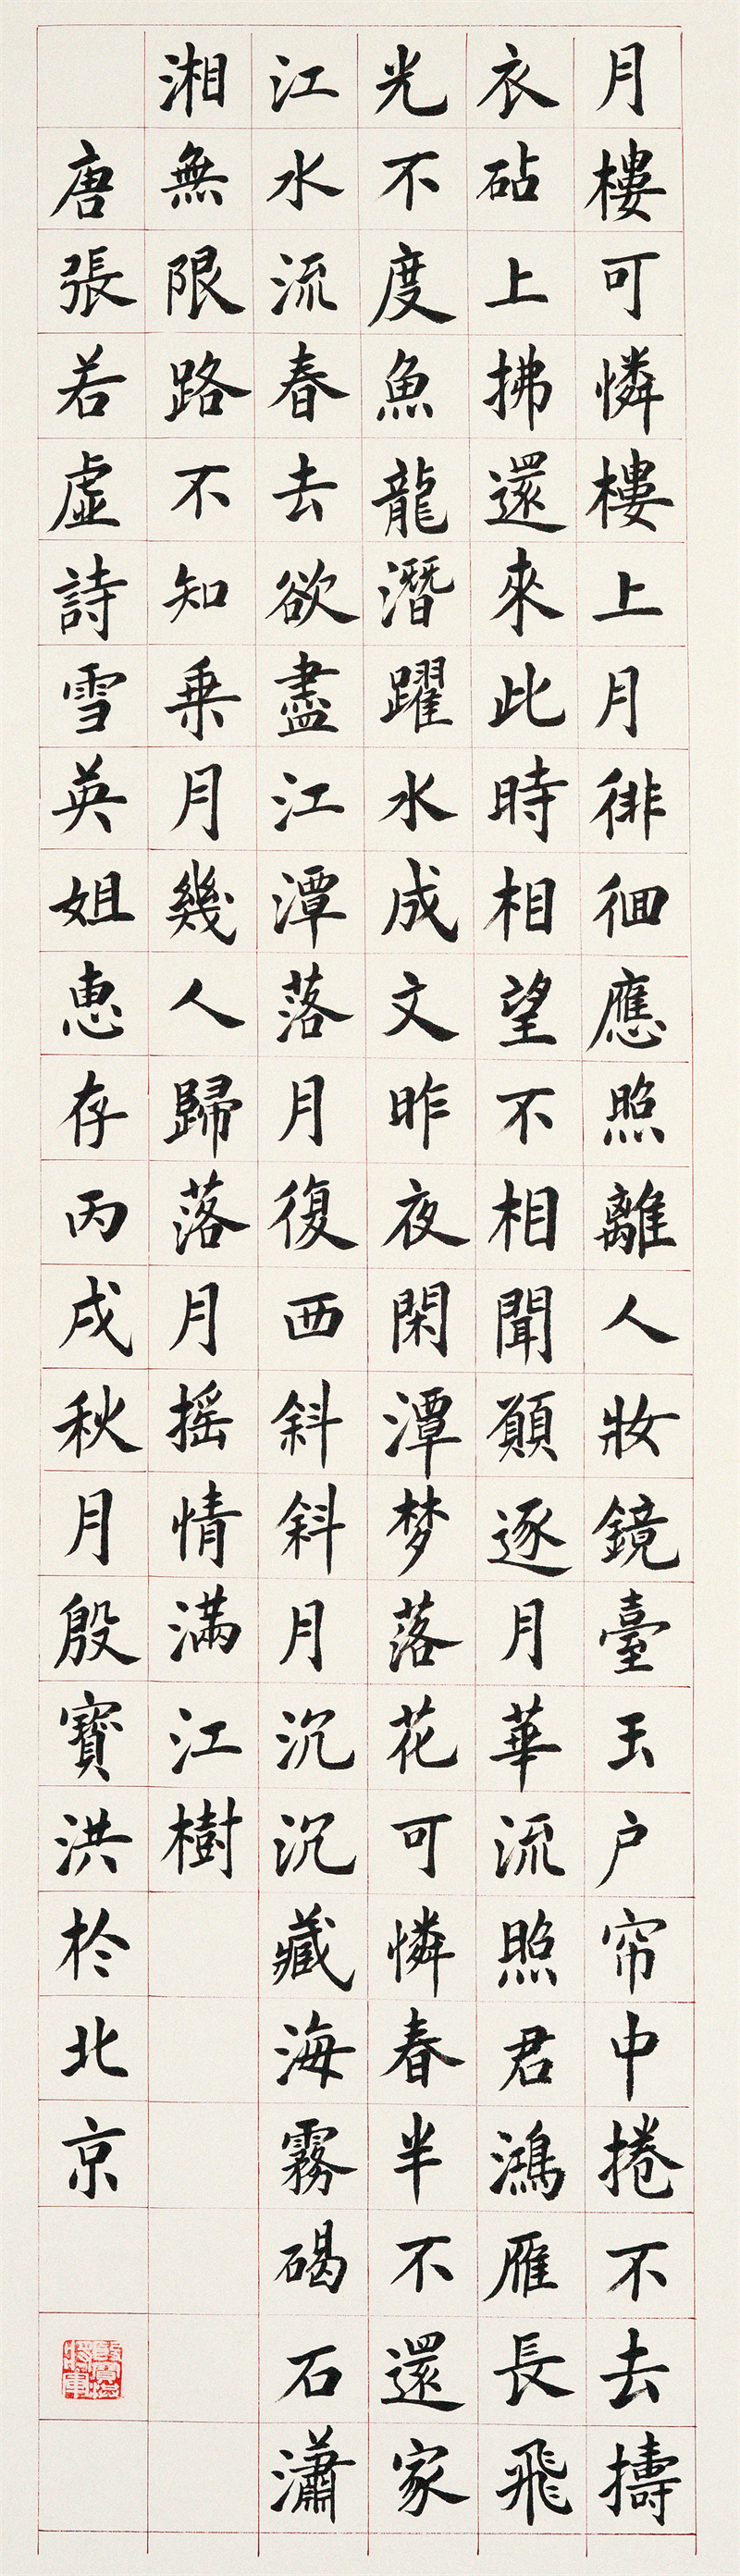 月樓可憐樓上月徘徊應照離人妝鏡臺玉户帘中捲不去擣
衣砧上拂還來此時相望不相聞願逐月華流照君鴻雁長飛
光不度魚龍潛躍水成文昨夜閑潭梦落花可憐春半不還家
江水流春去欲盡江潭落月復西斜斜月沉沉藏海霧碣石瀟
湘無限路不知乗月幾人歸落月摇情满江樹
唐張若虛詩雪英姐惠存丙戌秋月殷寶洪於北京